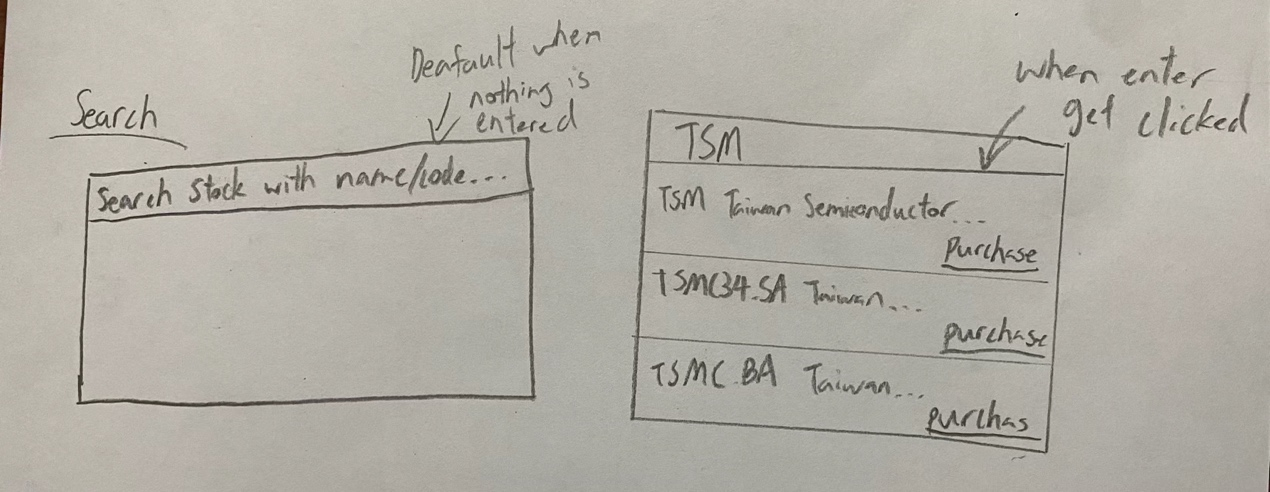 Search
Deafault when
nothing is
entered
Search Stock with name/code...
when enter
get clicked
TSM
TSM Taiwan Semiconductor...
Purchase
TSMC34.SA Taiwan...
purchase
TSMC.BA Taiwan...
purchas